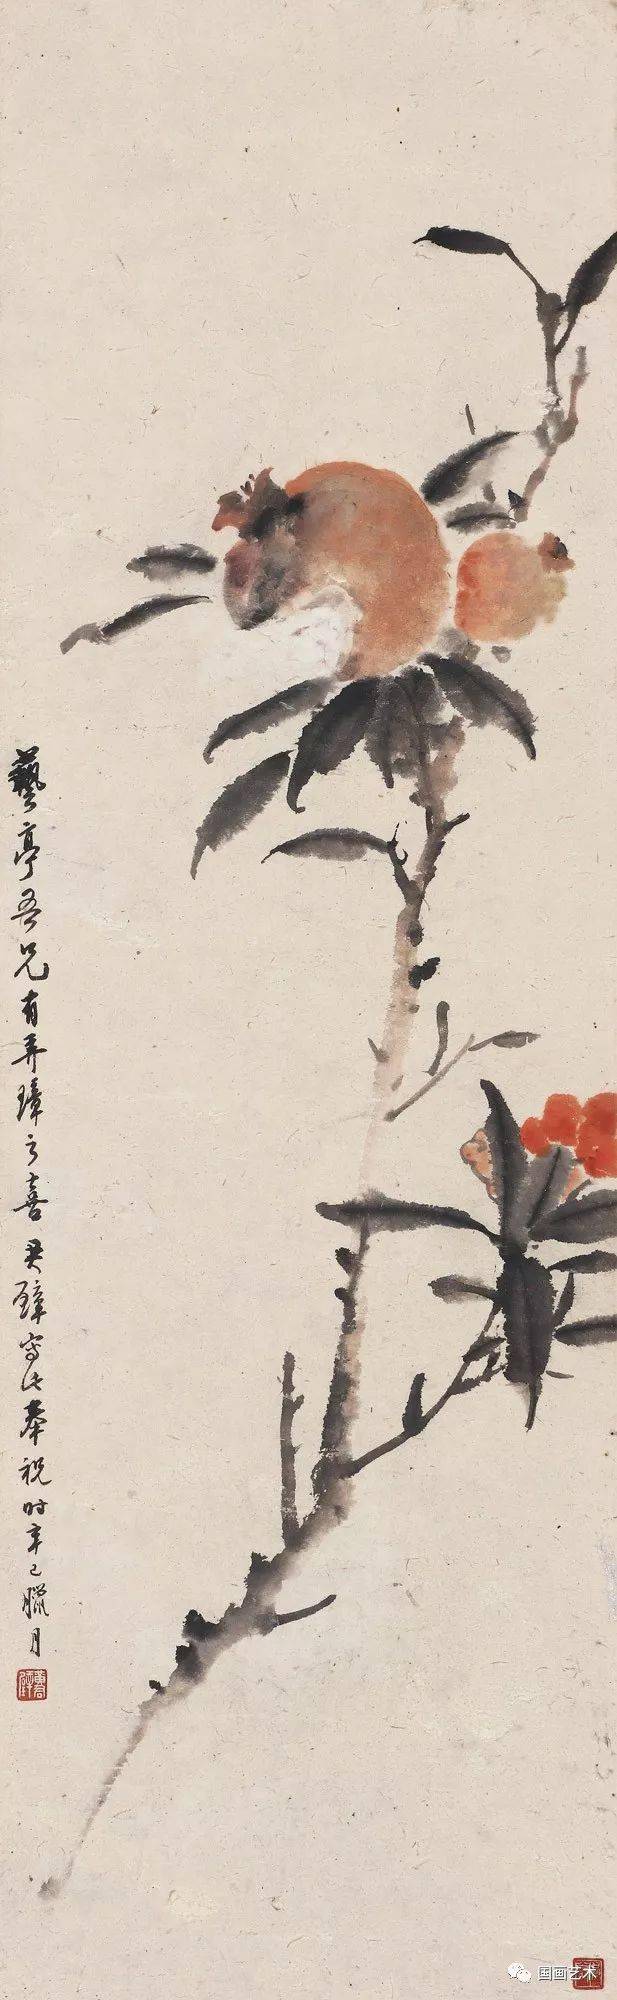 藝亭吾兄有弄璋之喜君璧寫此奉祝时辛巳臘月
黃君璧
国画艺术